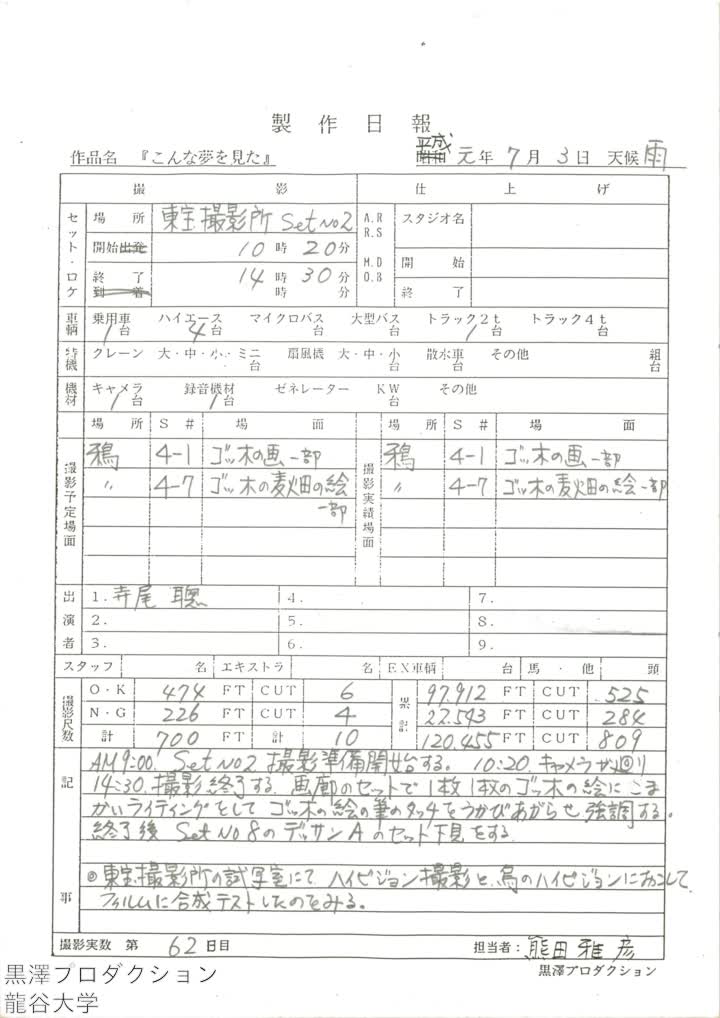 製作日報
作品名 『こんな夢を見た』
平成 昭和 元年 7月 3日 天候 雨
撮影 仕上げ
セット・ロケ 場所 東宝撮影所 Set No2 A.R R.S スタジオ名
開始 出発 10時 20分
終了 到着 14時 30分 時 分 M.D O.B 開始
終了
車輌 乗用車 1台 ハイエース 4台 マイクロバス 台 大型バス 台 トラック2t 1台 トラック4t 台
特機 クレーン 大・中・小・ミニ 台 扇風機 大・中・小 台 散水車 台 その他 組 台
機材 キャメラ 1台 録音機材 1台 ゼネレーター KW 台 その他
場所 S# 場面 場所 S# 場面
撮影予定場面 鴉 4-1 ゴッホの画一部 撮影実績場面 鴉 4-1 ゴッホの画一部
〃 4-7 ゴッホの麦畑の絵一部 〃 4-7 ゴッホの麦畑の絵一部
出演者 1. 寺尾 聰 4. 7.
2. 5. 8.
3. 6. 9.
スタッフ 名 エキストラ 名 EX車輌 台 馬・他 頭
撮影尺数 O・K 474 FT CUT 6 累計 97,912 FT CUT 525
N・G 226 FT CUT 4 22.543 FT CUT 284
計 700 FT 計 10 120.455 FT CUT 809
記事
AM9:00. Set No2 撮影準備開始する。 10:20. キャメラが廻り
14:30. 撮影終了する。画廊のセットで1枚1枚のゴッホの絵にこま
かいライティングをして ゴッホの絵の筆のタッチをうかびあがらせ強調する。
終了後 Set No8のデッサンAのセット下見をする。
◎東宝撮影所の試写室にて ハイビジョン撮影と、烏のハイビジョンにおこして
フィルムに合成テストしたのをみる。
撮影実数 第 62日目 担当者: 熊田雅彦
黒澤プロダクション
黒澤プロダクション
龍谷大学